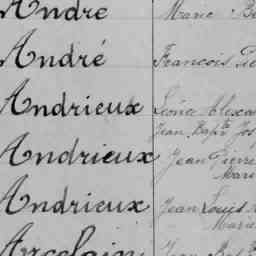 André Marie
André François
Andrieux Léonce Alexa
Jean Bapte Jos
Andrieux Jean Pierre
Marie
Andrieux Jean Louis
Marie
Arcelain Jean Bapt